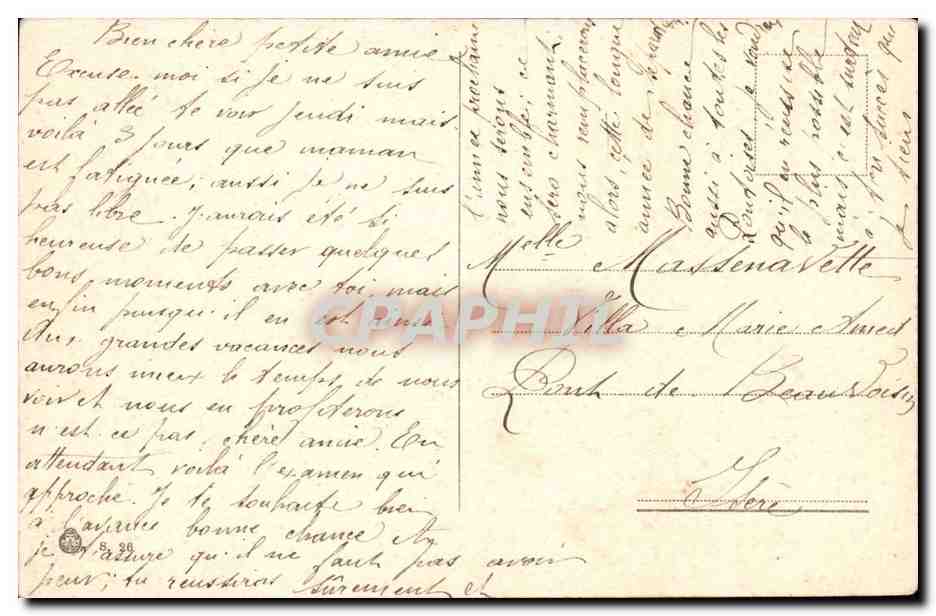 Bien chère petite amie
Excuse-moi si je ne suis
pas allée te voir jeudi mais
voilà 3 jours que maman
est fatiguée, aussi je ne suis
pas libre. J'aurais été si
heureuse de passer quelques
bons moments avec toi, mais
enfin puisqu'il en est ainsi
Aux grandes vacances nous
aurons mieux le temps de nous
voir et nous en profiterons
n'est-ce pas, chère amie. En
attendant voilà l'examen qui
approche. Je te souhaite bien
à l'avance bonne chance
je t'assure qu'il ne faut pas avoir
peur; tu reussiras sûrement et
l'année prochaine
nous serons
ensemble ce
sera charmant
nous remplacerons
alors cette longue
année de
Bonne chance
aussi à toutes les
je voudrais
qu'il en reussisse
le plus possible
mais c'est surtout
à ton succès que
je tiens
Melle Massenavette
Villa Marie Amed
Pont de Beauvoisin
Isère
S. 26
CRAPHIL